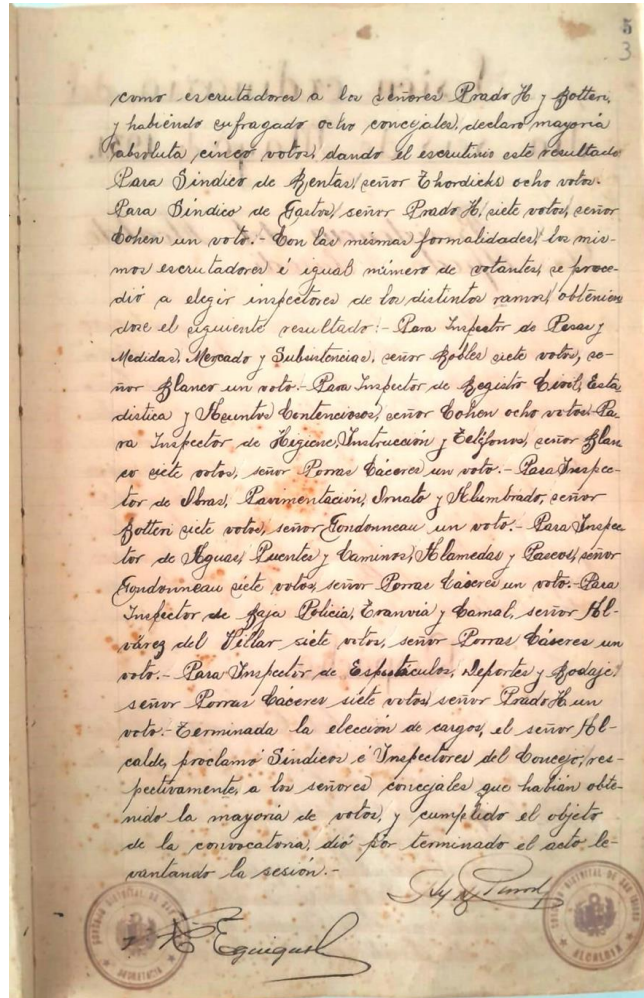 5
3
como escrutadores a los señores Prado H. y Botteri,
y habiendo sufragado ocho concejales, declaro mayoría
absoluta cinco votos, dando el escrutinio este resultado
Para Síndico de Rentas, señor Thordicke ocho votos.
Para Síndico de Gastos, señor Prado H. siete votos, señor
Cohen un voto.- Con las mismas formalidades, los mis-
mos escrutadores é igual número de votantes, se proce-
dió a elegir inspectores de los distintos ramos, obtenien
dose el siguiente resultado:- Para Inspector de Pesas y
Medidas, Mercado y Subsistencias, señor Robles siete votos, se-
ñor Blanco un voto.- Para Inspector de Registro Civil, Esta
dística y Asuntos Contenciosos, señor Cohen ocho votos- Pa-
ra Inspector de Higiene, Instrucción y Teléfonos, señor Blan
co siete votos, señor Porras Cáceres un voto.- Para Inspec-
tor de Obras, Pavimentación, Ornato y Alumbrado, señor
Botteri siete votos, señor Gondonneau un voto.- Para Inspec
tor de Aguas, Puentes y Caminos, Alamedas y Paseos, señor
Gondonneau siete votos, señor Porras Cáceres un voto.- Para
Inspector de Baja Policía, Tranvía y Camal, señor Al-
várez del Villar siete votos, señor Porras Cáceres un
voto.- Para Inspector de Espectáculos, Deportes y Rodaje,
señor Porras Cáceres siete votos, señor Prado H. un
voto.- Terminada la elección de cargos, el señor Al-
calde, proclamó Síndicos é Inspectores del Concejo, res-
pectivamente, a los señores concejales que habían obte-
nido la mayoría de votos, y cumplido el objeto
de la convocatoria, dió por terminado el acto le-
vantando la sesión.-
CONCEJO DISTRITAL DE SAN
SECRETARIA
CONCEJO DISTRITAL DE SAN
ALCALDIA